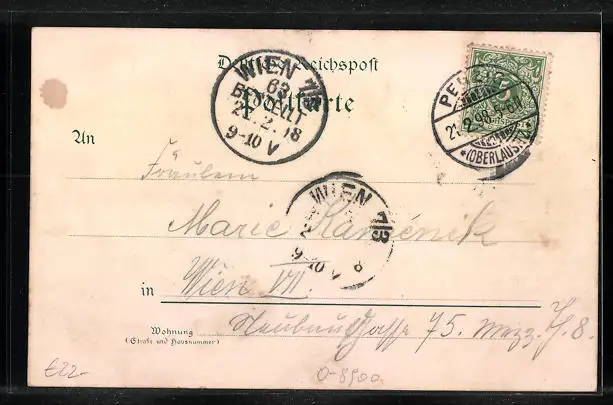 Deutsche Reichspost
Postkarte
WIEN 7/3
63
BESTELLT
2.98
9-10 V
PE
21.2.98. 5-6N.
*(OBERLAUS.)*
5
An
Fräulein
Marie Kaménik
WIEN 7/3
9-10 V
8
in Wien VII.
Wohnung
(Straße und Hausnummer)
Neubaugasse 75. Mezz. Th. 8.
£22.-
O-8900